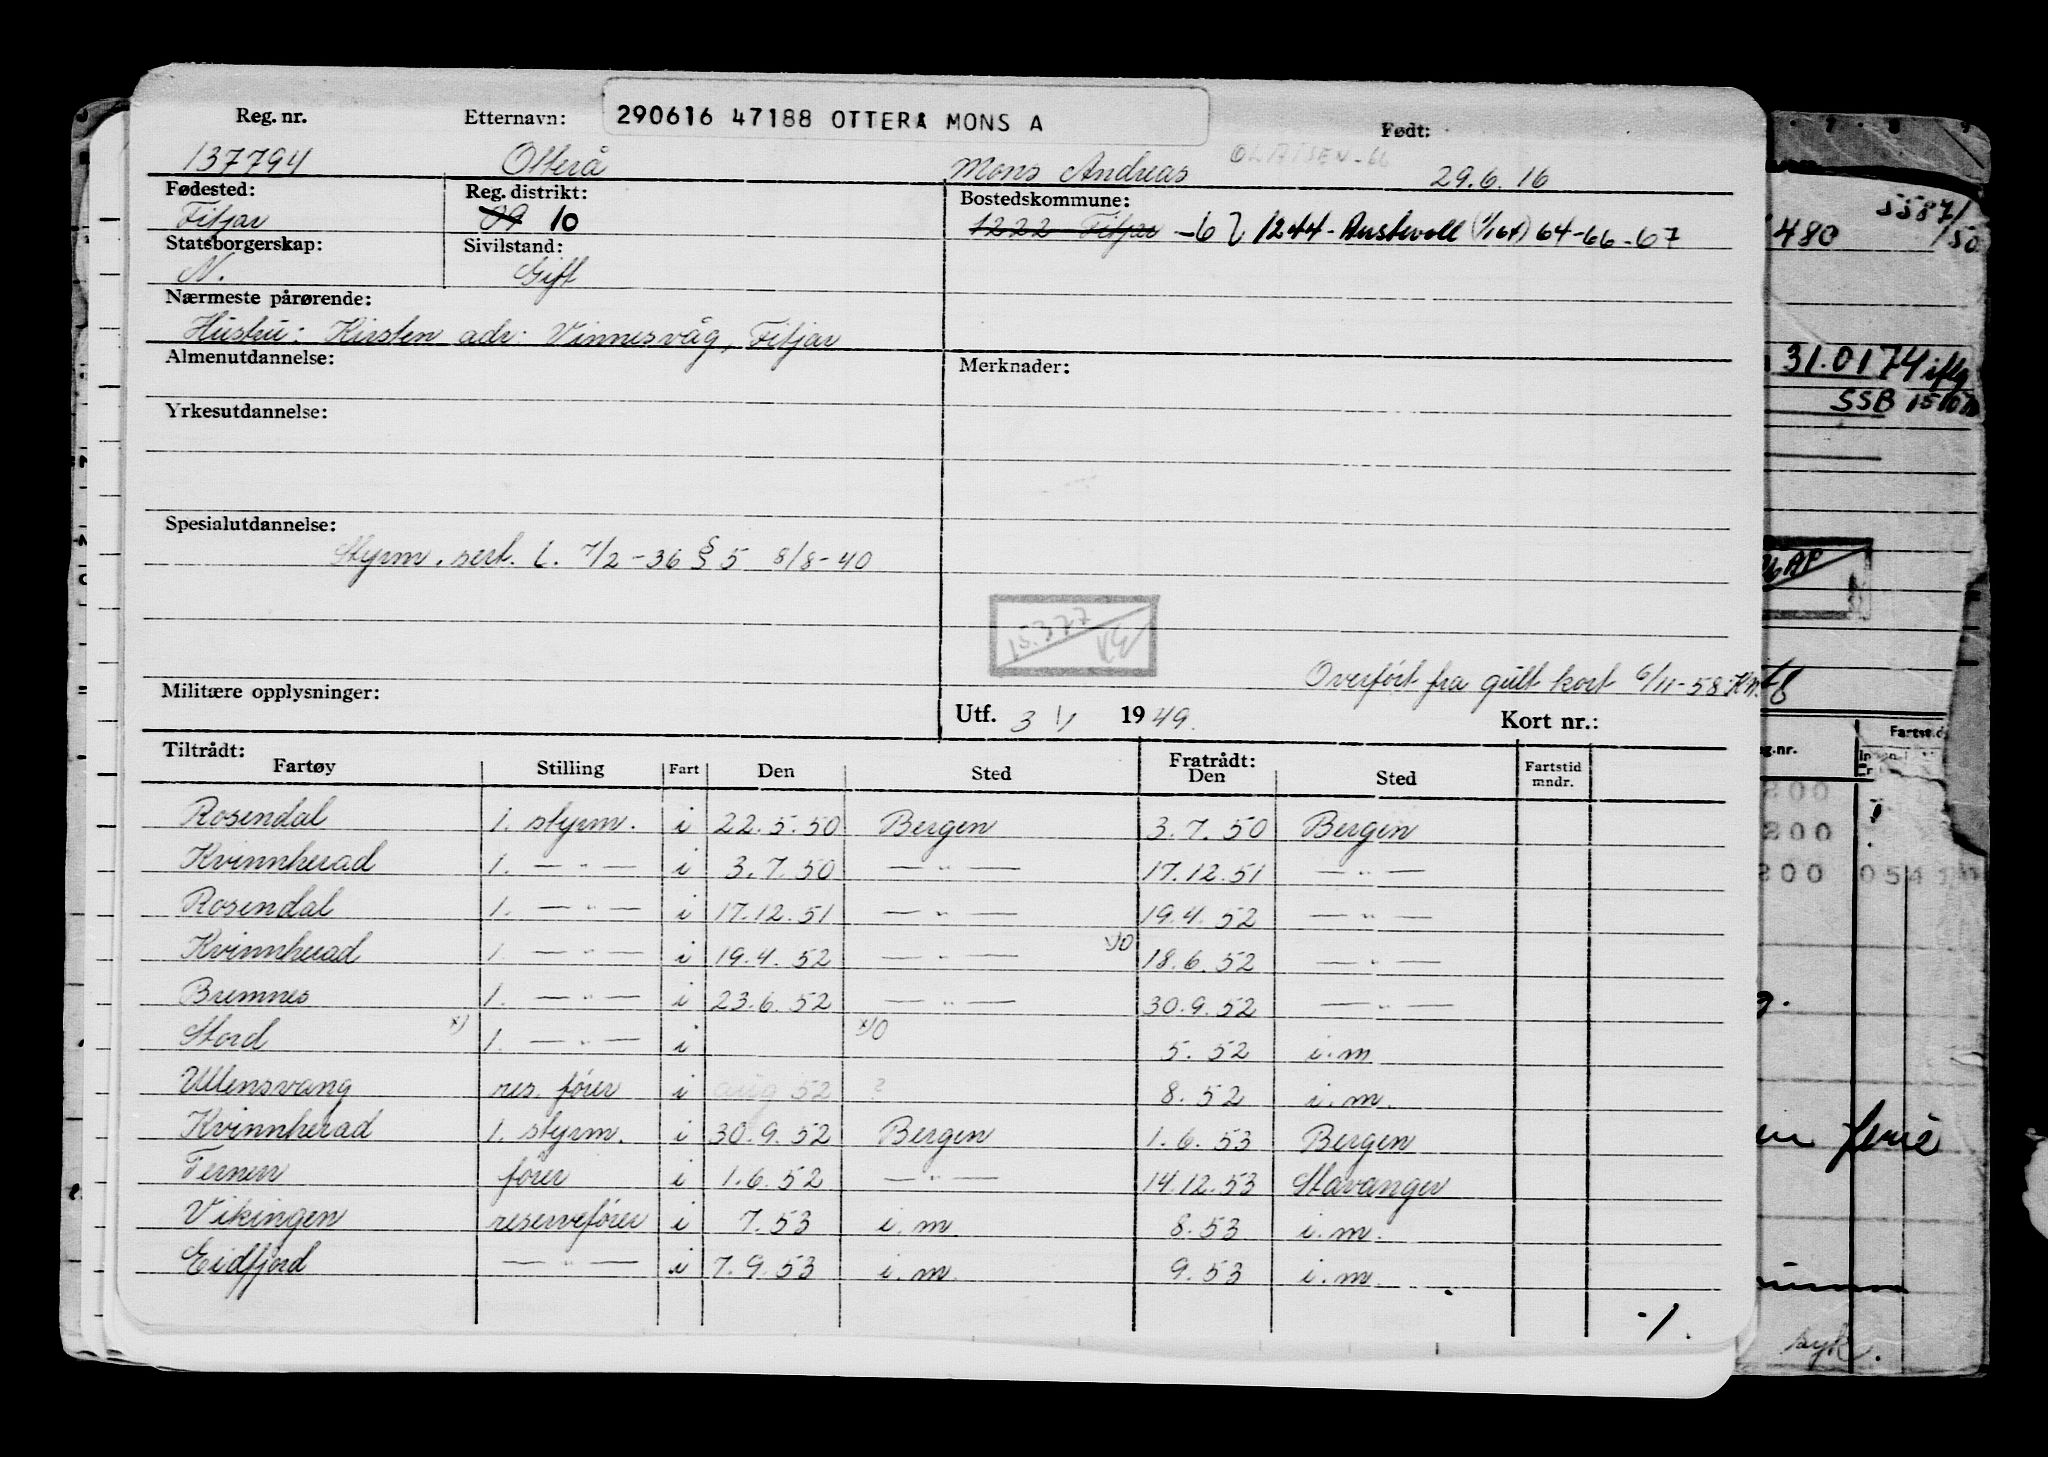 Reg. nr. Etternavn: 290616 47188 OTTERA MONS A Født:
137794 Otterå Mons Andreas OLAISEN-66 29.6.16
Fødested: Reg. distrikt: Bostedskommune:
Fitjar 09 10 1222 Fitjar -62 1244-Austevoll (1/1 64) 64-66-67
Statsborgerskap: Sivilstand:
N. Gift
Nærmeste pårørende:
Hustru: Kirsten adr: Vinnesvåg, Fitjar
Almenutdannelse: Merknader:
Yrkesutdannelse:
Spesialutdannelse:
Styrm. sert. L. 7/2-36 § 5 8/8-40
15.377
Overført fra gult kort 6/11-58
Militære opplysninger:
Utf. 3/ 1949. Kort nr.:
Tiltrådt: Fratrådt:
Fartøy Stilling Fart Den Sted Den Sted Fartstid mndr.
Rosendal 1. styrm. i 22.5.50 Bergen 3.7.50 Bergen
Kvinnherad 1. — " — i 3.7.50 — " — 17.12.51 — " —
Rosendal 1. — " — i 17.12.51 — " — 19.4.52 — " —
Kvinnherad 1. — " — i 19.4.52 — " — x)0 18.6.52 — " —
Bremnes 1. — " — i 23.6.52 — " — 30.9.52 — " —
Stord x) 1. — " — i x)0 5.52 i.m
Ullensvang res. fører i aug 52 ? 8.52 i.m.
Kvinnherad 1. styrm. i 30.9.52 Bergen 1.6.53 Bergen
Ternen fører i 1.6.52 — " — 14.12.53 Stavanger
Vikingen reservefører i 7.53 i.m 8.53 i.m.
Eidfjord — " — i 7.9.53 i.m. 9.53 i.m.
-1.
5587/50
480
31.0174 iflg
SSB
g.nr. Fartstid
800
800
800 054
en ferie
syk.